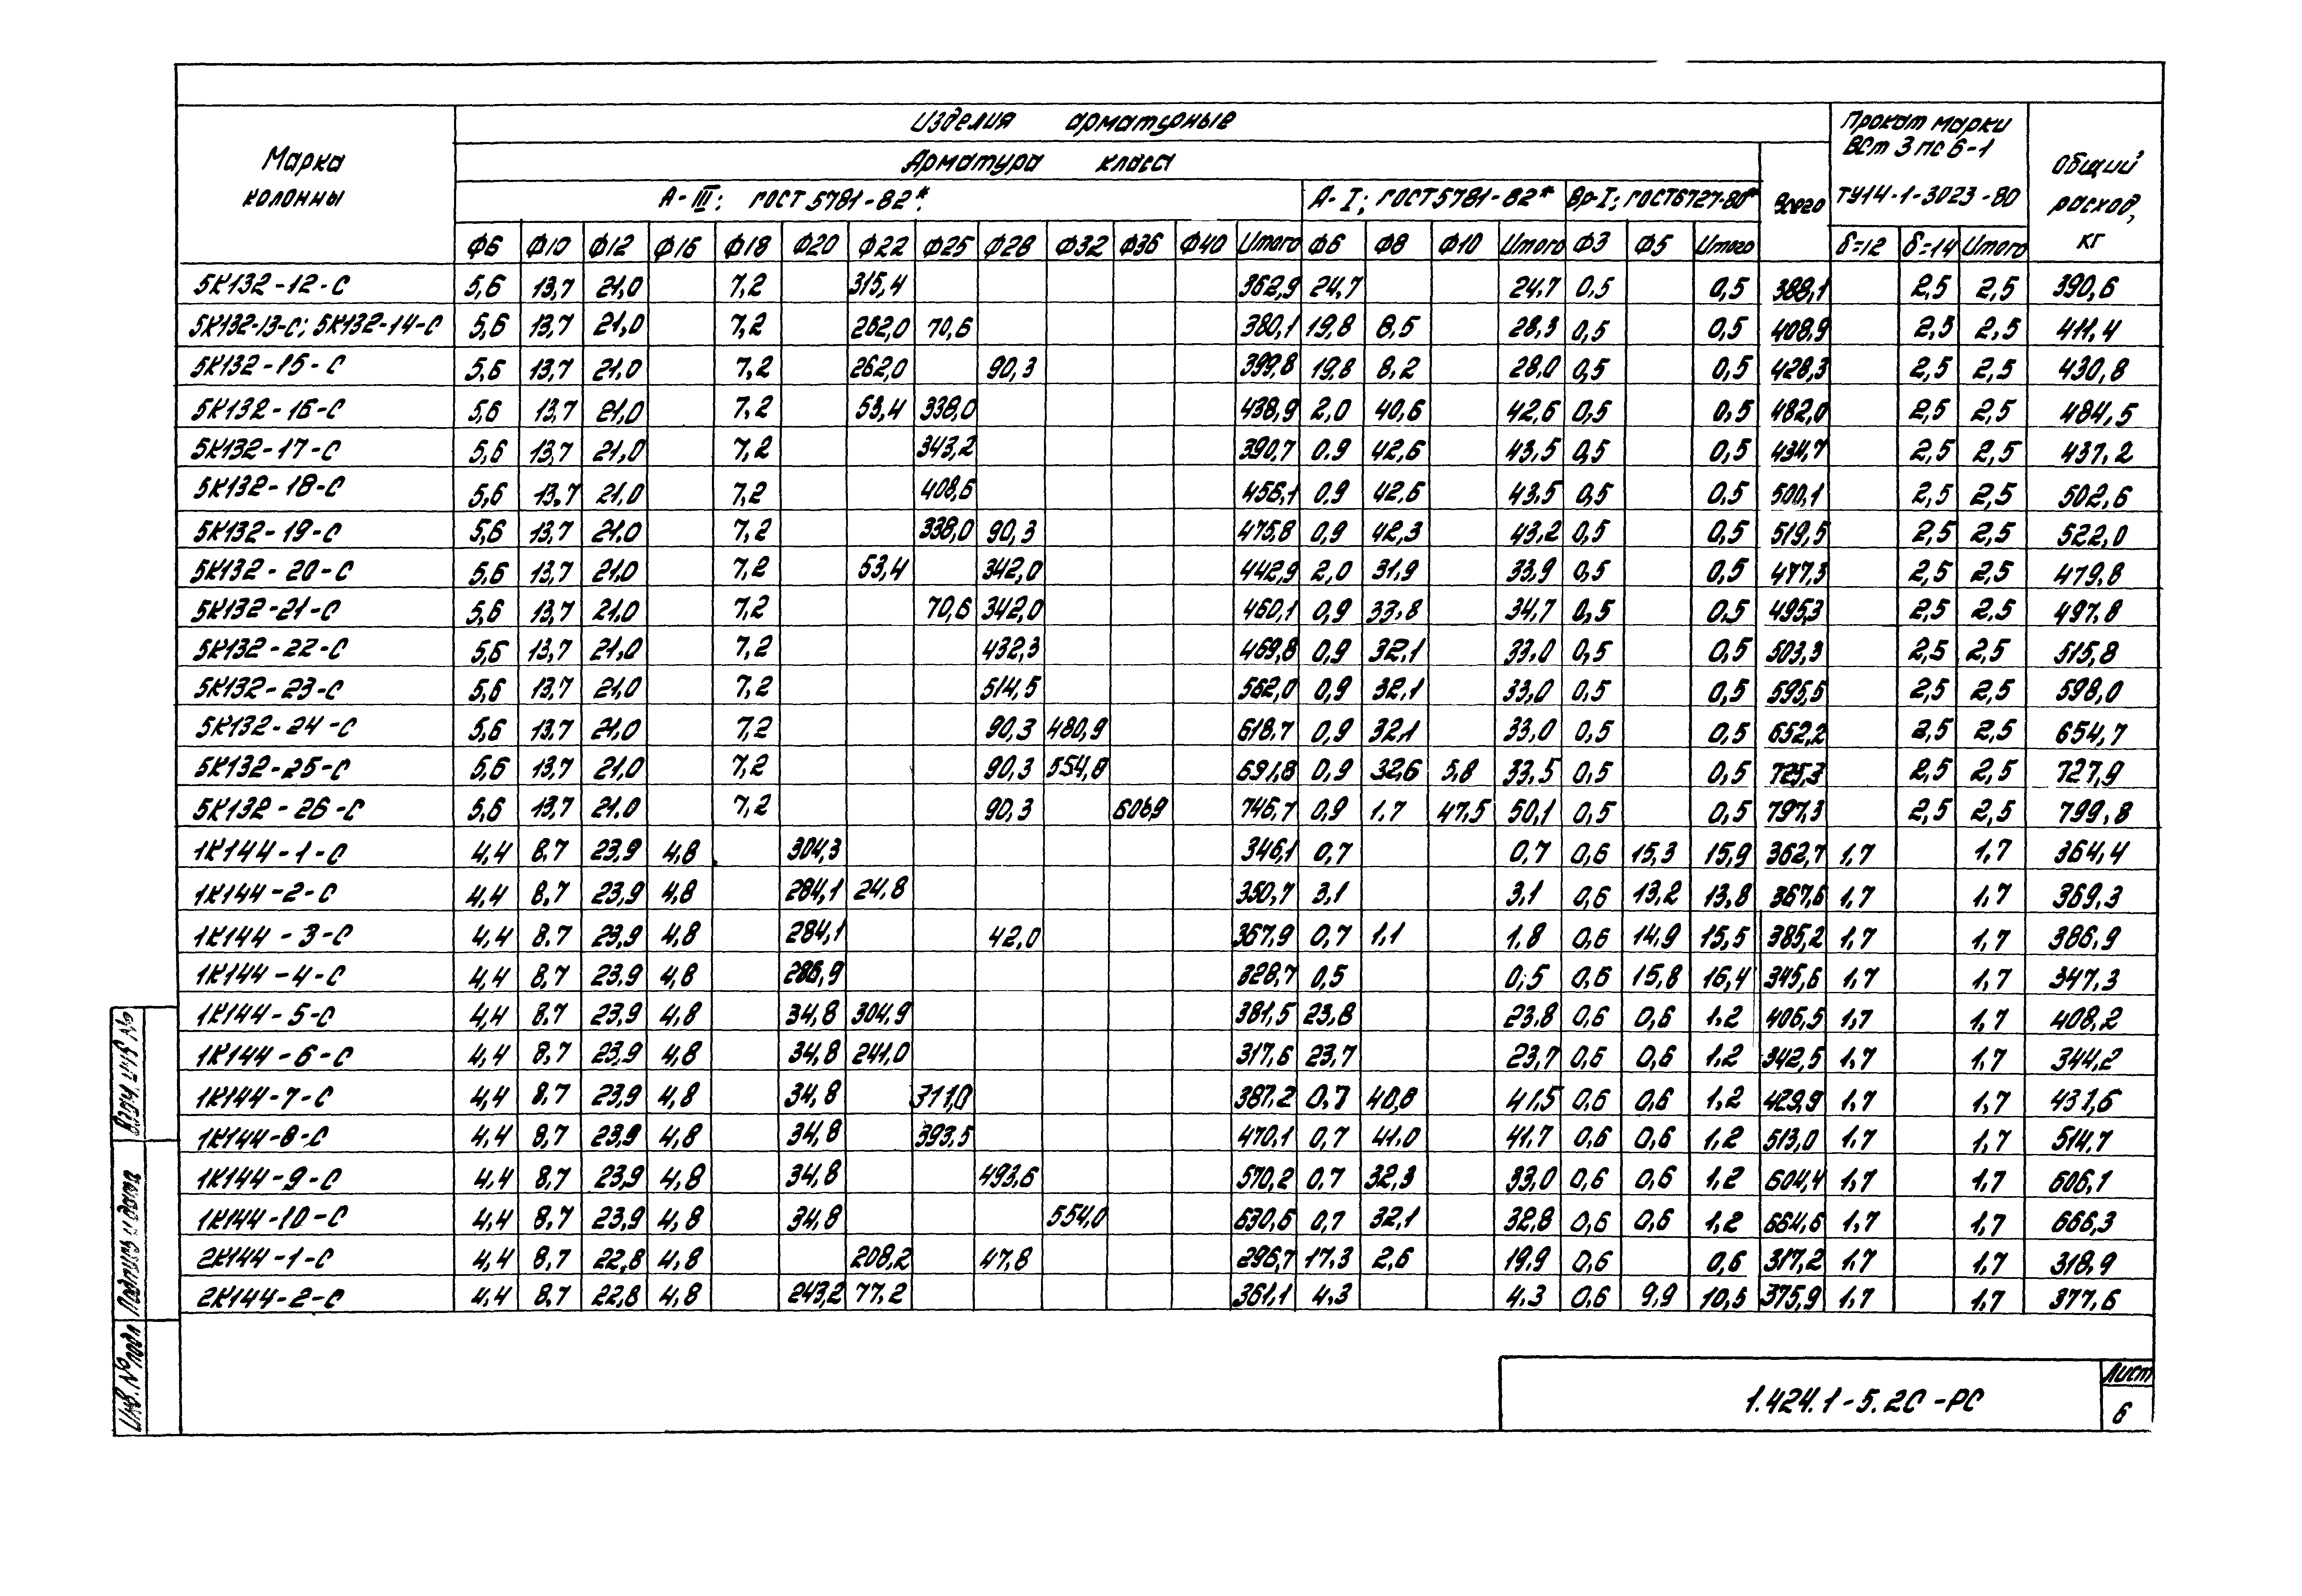 Изделия арматурные
Марка колонны
Арматура класса
Прокат марки ВСт 3 пс 6-1
ТУ14-1-3023-80
Общий расход, кг
А-III; ГОСТ 5781-82*.
А-I; ГОСТ 5781-82*
Вр-I; ГОСТ 6727-80*
Всего
Ф6 Ф10 Ф12 Ф16 Ф18 Ф20 Ф22 Ф25 Ф28 Ф32 Ф36 Ф40 Итого Ф6 Ф8 Ф10 Итого Ф3 Ф5 Итого δ=12 δ=14 Итого
5К132-12-С 5,6 13,7 21,0 7,2 315,4 362,9 24,7 24,7 0,5 0,5 388,1 2,5 2,5 390,6
5К132-13-С; 5К132-14-С 5,6 13,7 21,0 7,2 262,0 70,6 380,1 19,8 8,5 28,3 0,5 0,5 408,9 2,5 2,5 411,4
5К132-15-С 5,6 13,7 21,0 7,2 262,0 90,3 399,8 19,8 8,2 28,0 0,5 0,5 428,3 2,5 2,5 430,8
5К132-16-С 5,6 13,7 21,0 7,2 53,4 338,0 438,9 2,0 40,6 42,6 0,5 0,5 482,0 2,5 2,5 484,5
5К132-17-С 5,6 13,7 21,0 7,2 343,2 390,7 0,9 42,6 43,5 0,5 0,5 434,7 2,5 2,5 437,2
5К132-18-С 5,6 13,7 21,0 7,2 408,6 456,1 0,9 42,6 43,5 0,5 0,5 500,1 2,5 2,5 502,6
5К132-19-С 5,6 13,7 21,0 7,2 338,0 90,3 475,8 0,9 42,3 43,2 0,5 0,5 519,5 2,5 2,5 522,0
5К132-20-С 5,6 13,7 21,0 7,2 53,4 342,0 442,9 2,0 31,9 33,9 0,5 0,5 477,3 2,5 2,5 479,8
5К132-21-С 5,6 13,7 21,0 7,2 70,6 342,0 460,1 0,9 33,8 34,7 0,5 0,5 495,3 2,5 2,5 497,8
5К132-22-С 5,6 13,7 21,0 7,2 432,3 469,8 0,9 32,1 33,0 0,5 0,5 503,3 2,5 2,5 515,8
5К132-23-С 5,6 13,7 21,0 7,2 514,5 562,0 0,9 32,1 33,0 0,5 0,5 595,5 2,5 2,5 598,0
5К132-24-С 5,6 13,7 21,0 7,2 90,3 480,9 618,7 0,9 32,1 33,0 0,5 0,5 652,2 2,5 2,5 654,7
5К132-25-С 5,6 13,7 21,0 7,2 90,3 554,0 691,8 0,9 32,6 5,8 33,5 0,5 0,5 725,3 2,5 2,5 727,9
5К132-26-С 5,6 13,7 21,0 7,2 90,3 608,9 746,7 0,9 1,7 47,5 50,1 0,5 0,5 797,3 2,5 2,5 799,8
1К144-1-С 4,4 8,7 23,9 4,8 304,3 346,1 0,7 0,7 0,6 15,3 15,9 362,7 1,7 1,7 364,4
1К144-2-С 4,4 8,7 23,9 4,8 284,1 24,8 350,7 3,1 3,1 0,6 13,2 13,8 367,6 1,7 1,7 369,3
1К144-3-С 4,4 8,7 23,9 4,8 284,1 42,0 367,9 0,7 1,1 1,8 0,6 14,9 15,5 385,2 1,7 1,7 386,9
1К144-4-С 4,4 8,7 23,9 4,8 286,9 328,7 0,5 0,5 0,6 15,8 16,4 345,6 1,7 1,7 347,3
1К144-5-С 4,4 8,7 23,9 4,8 34,8 304,9 381,5 23,8 23,8 0,6 0,6 1,2 406,5 1,7 1,7 408,2
1К144-6-С 4,4 8,7 23,9 4,8 34,8 241,0 317,6 23,7 23,7 0,6 0,6 1,2 342,5 1,7 1,7 344,2
1К144-7-С 4,4 8,7 23,9 4,8 34,8 311,0 387,2 0,7 40,8 41,5 0,6 0,6 1,2 429,9 1,7 1,7 431,6
1К144-8-С 4,4 8,7 23,9 4,8 34,8 393,5 470,1 0,7 41,0 41,7 0,6 0,6 1,2 513,0 1,7 1,7 514,7
1К144-9-С 4,4 8,7 23,9 4,8 34,8 493,6 570,2 0,7 32,3 33,0 0,6 0,6 1,2 604,4 1,7 1,7 606,1
1К144-10-С 4,4 8,7 23,9 4,8 34,8 554,0 630,6 0,7 32,1 32,8 0,6 0,6 1,2 664,6 1,7 1,7 666,3
2К144-1-С 4,4 8,7 22,8 4,8 208,2 47,8 296,7 17,3 2,6 19,9 0,6 0,6 317,2 1,7 1,7 318,9
2К144-2-С 4,4 8,7 22,8 4,8 243,2 77,2 361,1 4,3 4,3 0,6 9,9 10,5 375,9 1,7 1,7 377,6
Взам. инв №
Подпись и дата
Инв. № подл
1.424.1-5.2С-РС
Лист
6